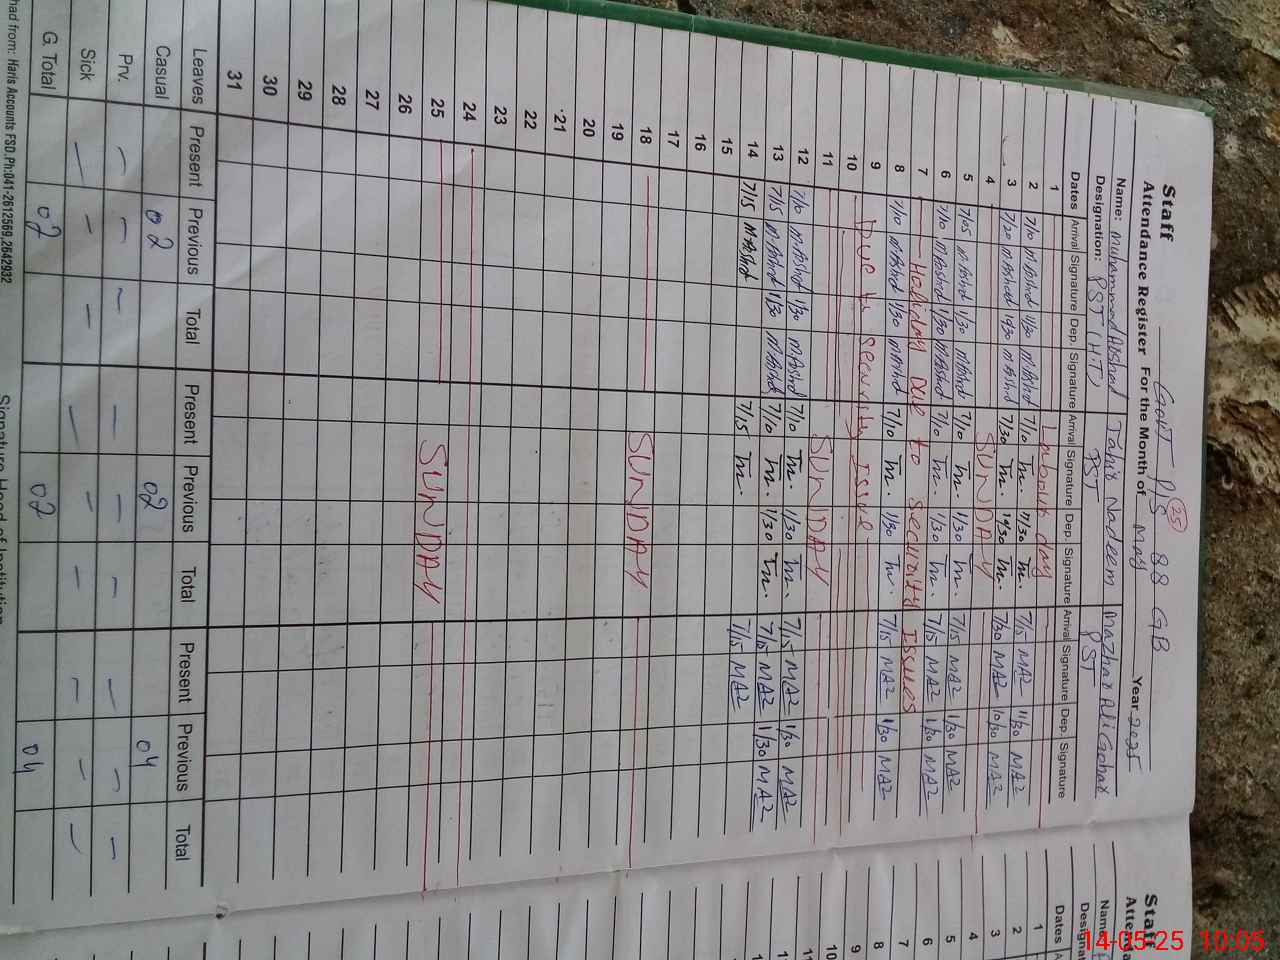 Staff
Govt P/S 88 GB
25
Attendance Register For the Month of May Year 2025
Name: Muhammad Arshad Tahir Nadeem Mazhar Ali Gohar
Designation: PST (H.T) PST PST
Dates Arrival Signature Dep. Signature Arrival Signature Dep. Signature Arrival Signature Dep. Signature
1 Labour day
2 7/10 M.Arshad 11/30 M.Arshad 7/10 Tn. 11/30 Tn. 7/15 MAZ 11/30 MAZ
3 7/20 M.Arshad 10/30 M.Arshad 7/30 Tn. 10/30 Tn. 7/30 MAZ 10/30 MAZ
4 SUNDAY
5 7/05 M.Arshad 1/30 M.Arshad 7/10 Tn. 1/30 Tn. 7/15 MAZ 1/30 MAZ
6 7/10 M.Arshad 1/30 M.Arshad 7/10 Tn. 1/30 Tn. 7/15 MAZ 1/30 MAZ
7 Holiday Due to security Issues
8 7/10 M.Arshad 1/30 M.Arshad 7/10 Tn. 1/30 Tn. 7/15 MAZ 1/30 MAZ
9 Due to security Issue
10
11 SUNDAY
12 7/10 M.Arshad 1/30 M.Arshad 7/10 Tn. 1/30 Tn. 7/15 MAZ 1/30 MAZ
13 7/15 M.Arshad 1/30 M.Arshad 7/10 Tn. 1/30 Tn. 7/15 MAZ 1/30 MAZ
14 7/15 M.Arshad 7/15 Tn. 7/15 MAZ
15
16
17
18 SUNDAY
19
20
21
22
23
24
25 SUNDAY
26
27
28
29
30
31
Leaves Present Previous Total Present Previous Total Present Previous Total
Casual 02 02 04
Prv. — — — — — — — — —
Sick — — — — — — — — —
G.Total 02 02 04
had from: Haris Accounts FSD,Ph:041-2612569,2642932
Signature Head of Institution
Staff
Dates
1
2
3
4
5
6
7
8
9
10
14-05-25 10:05